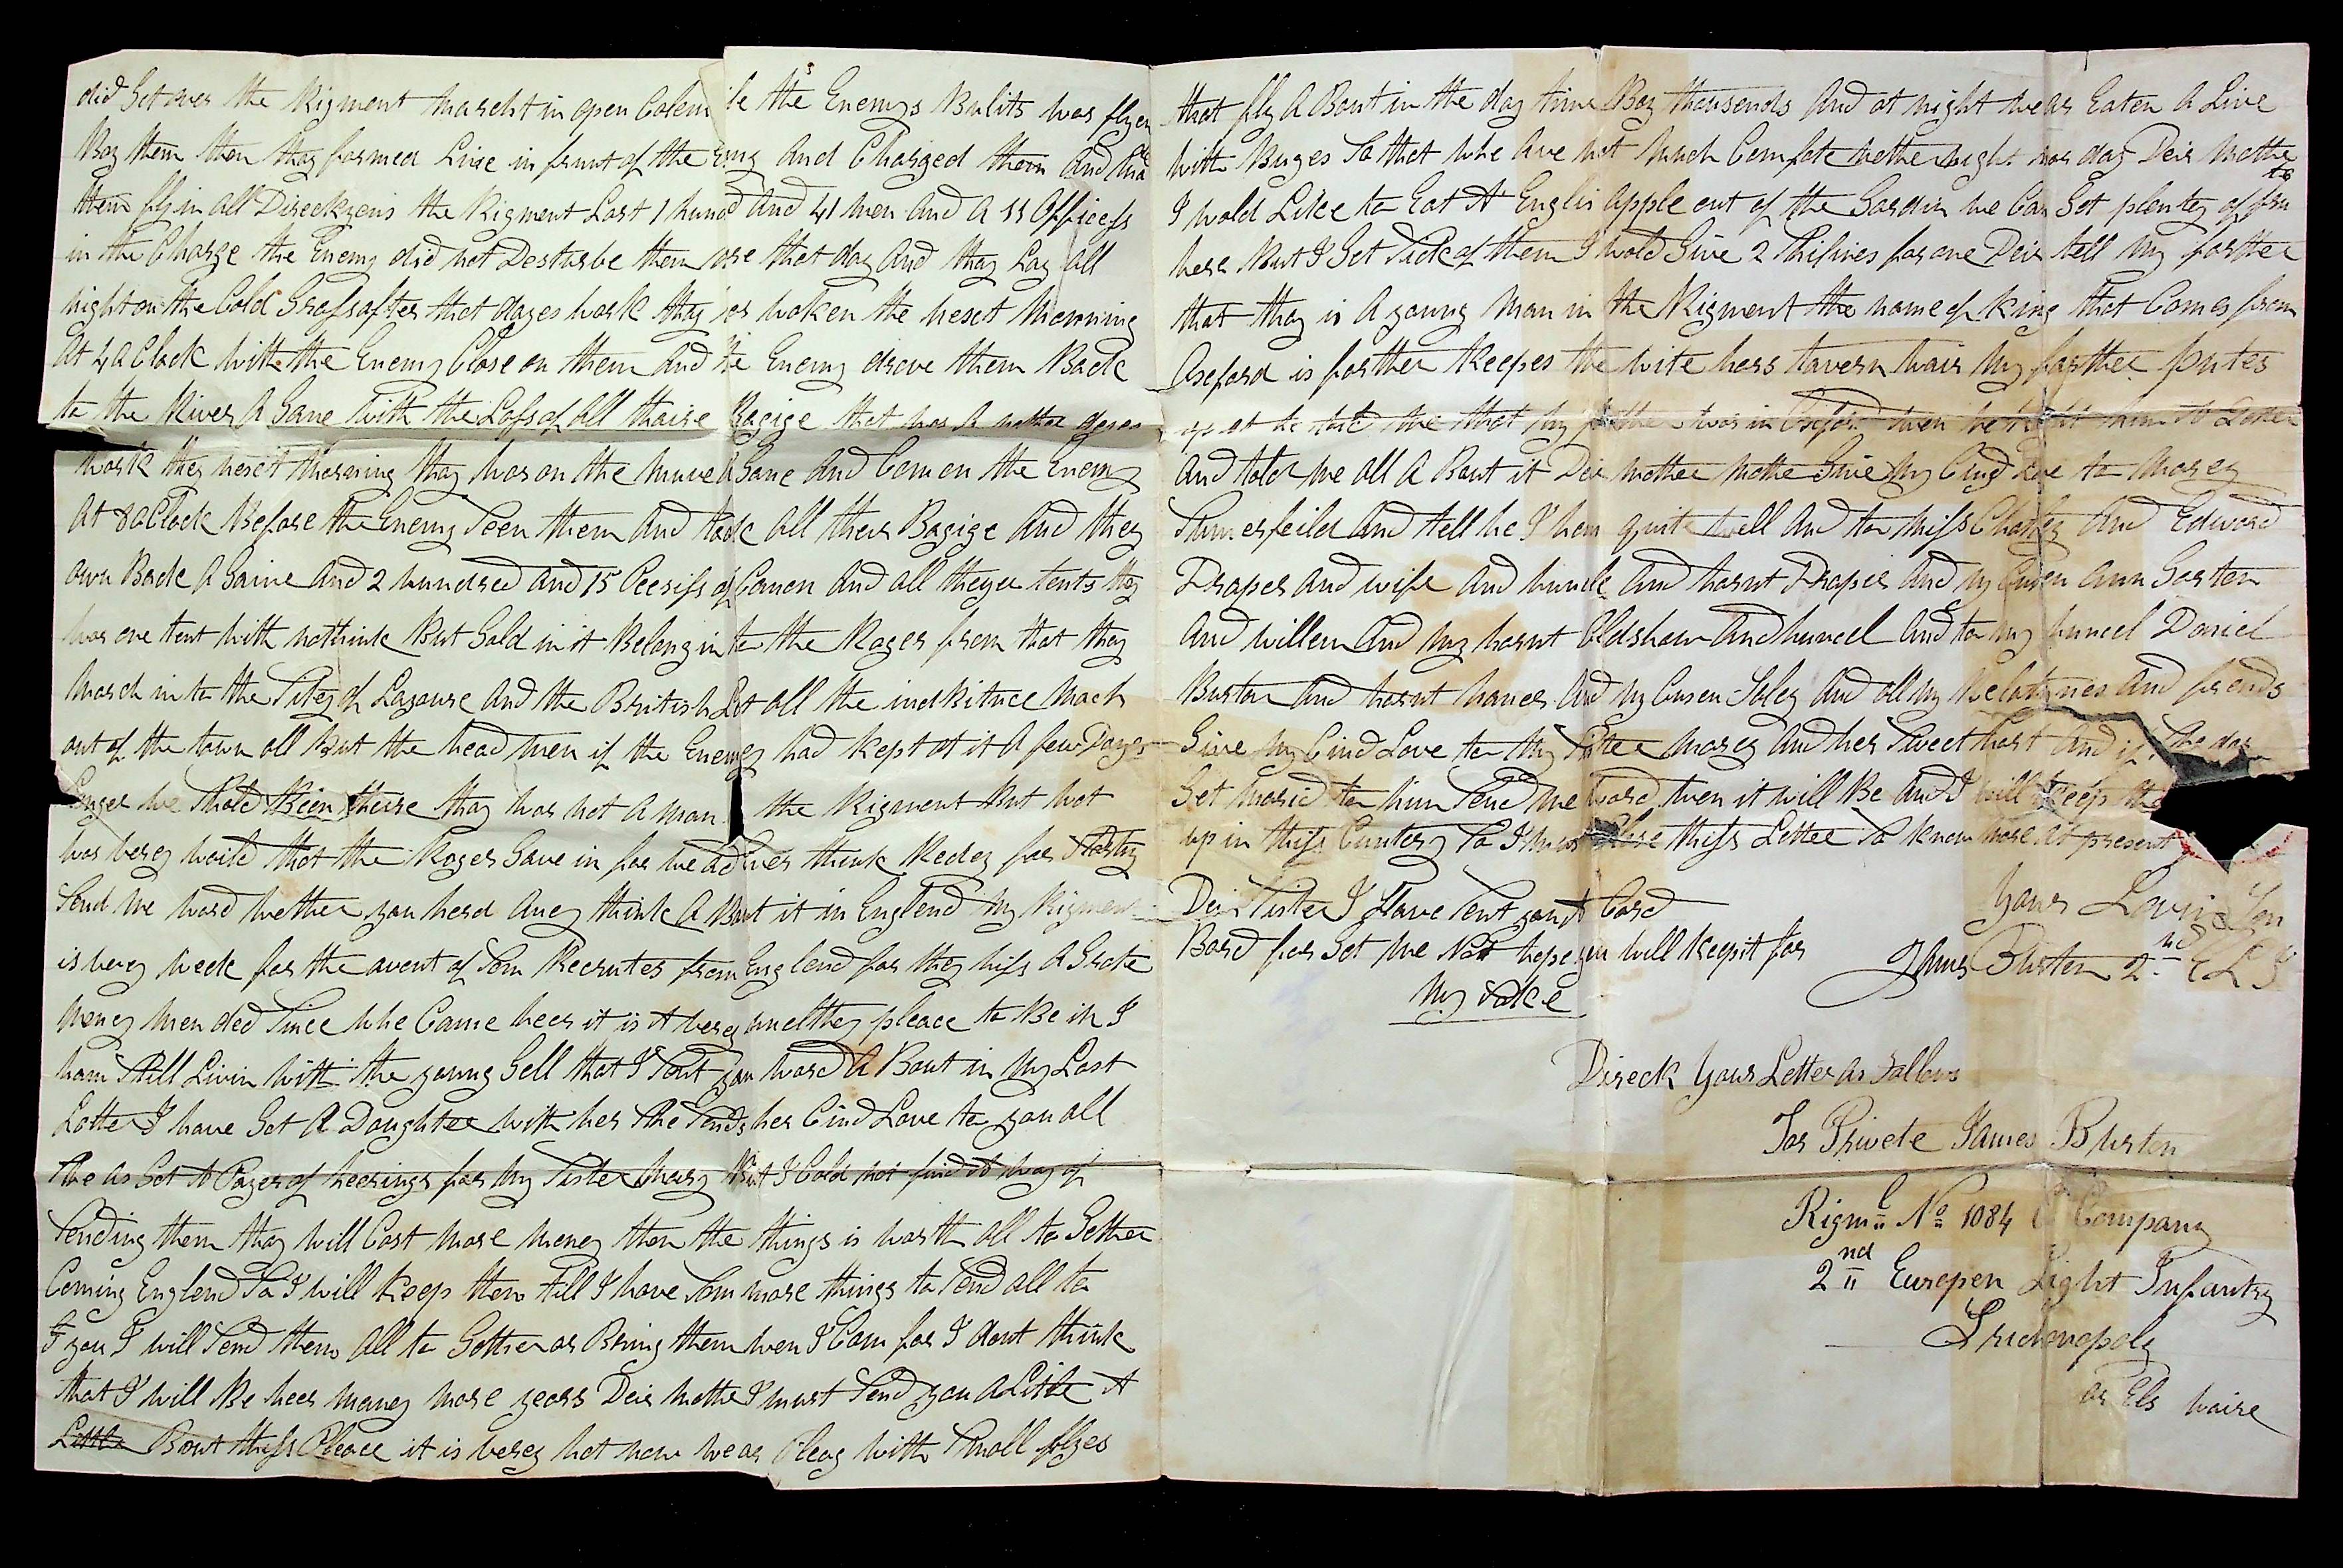 did Get over the Rigment marcht in open Colem ile the Enemys Bulits was flyen
Boy them then thay formed Line in frunt of the Enmy and Charged them And made
them fly in all Direckzens the Rigment Lost 1 hund and 41 men And A 11 Officess
in the Charge the Enemy did not Desturbe them more that day And thay Lay all
night on the Cold Grass after that dayes work thay wos woken the nesct Morning
At 4 a Clock with the Enemy Close on them And the Enemy drove them Back
to the River A Gane with the Loss of All thaire Bagige that was A nother
work they nesct morning thay was on the muve A Gane And Com on the Enemy
At 8 a Clock Before the Enemy Seen them And took all thers Bagige And they
own Back A Gaine And 2 hundred And 15 Peesiss of Canon And all theyer tents they
was one tent with nothink But Gold in it Belongin to the Roges from that thay
March in to the Sitey of Lahoure And the British Let all the inabitnce mach
out of the town all But the head men if the Enemey had kept at it A few Dayes
Longer we Shold Been theire thay was not A man in the Rigment But wot
was verey woild that the Roges Gave in for we Add Ever think Redey for Starting
Send me word wether you herd Aney think A Bout it in Englend My Rigment
is verey week for the avent of Som Recrutes from Englend for they hiss A Grate
Money men ded Since whe Came heer it is A verey unelthey pleace to Be in I
ham Still Livin with the young Gell that I Sent you word A Bout in my Last
Letter I have Got A Daughter with her She Sends her Cind Love to you all
She as Got A Payer of heerings for my Sister Marey But I Cold not find A way of
Sending them thay will Cost more Money then the things is worth all to Gether
Coming Englend So I will keep them till I have Som more things to Send all to
you I will Send them All to Gether or Bring them wen I Com for I dont think
that I will Be heer maney more years Deir Mother I must Send you A Little A
Little Bout thiss Pleace it is verey hot now we ar Pleag with Small flyes
that fly A Bout in the day time Boy thousends And at night we ar Eaten A Live
with Buges So that whe Ave not Much Comfote nether night nor day Deir Mother
I wold Like to Eat A Englis apple out of the Gardin we Can Get plentey of fru
here But I Get Sick of them I wold Give 2 for one Deir tell my farther
that thay is A young Man in the Rigment the name of King that Comes from
Oxeford is farther Keepes the wite hors tavern wair my farther putes
up at he told me that my farther was in Oxeford wen he A Letter
And told me all A Bout it Deir mother Give my Cind Love to Marey
Sumerfeild And tell he I ham quite well And to Miss And Edword
Draper And wife And huncle And harnt Draper And my Cusen Ann Gorten
And willem And my harnt Oldshaw And huncel And to my huncel Daniel
Burton And harnt And my Cusen And all my Relatines And frends
Give my Cind Love to my Sister Marey And her Sweet hart And if She dos
Get Maried to him Send me word wen it will Be And I will Keep the
up in thiss Cuntery So I must Close thiss Letter So know more at present
Deir Sister I Have Sent you A Card
Bord for Get me Not hope you will Kepit for
My Sake
Your Lovin Son
James Burten 2nd E L I
Direck Your Letter as Follows
For Privete James Burten
Rigmt No 1084 Company
2nd Europen Light Infantry
Trichonopoly
or Els waire